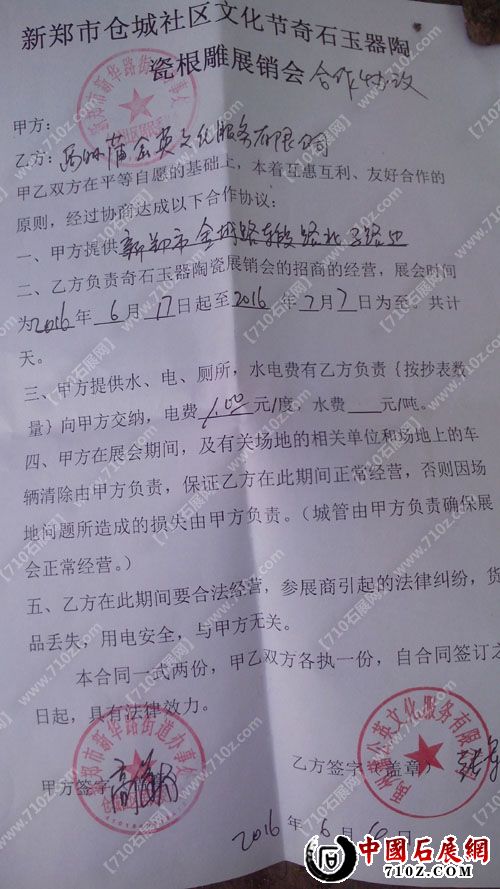 新郑市仓城社区文化节奇石玉器陶
瓷根雕展销会合作协议
甲方：
乙方：蒲公英文化服务有限公司
甲乙双方在平等自愿的基础上，本着互惠互利、友好合作的
原则，经过协商达成以下合作协议：
一、甲方提供新郑市仓城路
二、乙方负责奇石玉器陶瓷展销会的招商的经营，展会时间
为2016年6月17日起至2016年7月7日为至。共计
天。
三、甲方提供水、电、厕所，水电费有乙方负责{按抄表数
量}向甲方交纳，电费1.00元/度，水费___元/吨。
四、甲方在展会期间，及有关场地的相关单位和场地上的车
辆清除由甲方负责，保证乙方在此期间正常经营，否则因场
地问题所造成的损失由甲方负责。（城管由甲方负责确保展
会正常经营。）
五、乙方在此期间要合法经营，参展商引起的法律纠纷，货
品丢失，用电安全，与甲方无关。
本合同一式两份，甲乙双方各执一份，自合同签订之
日起，具有法律效力。
甲方签字
乙方签字（盖章）
2016年6月6日
新郑市新华路街道办事
公英文化服务有限
【710石展网】
www.710z.com
中國石展網
710Z.COM